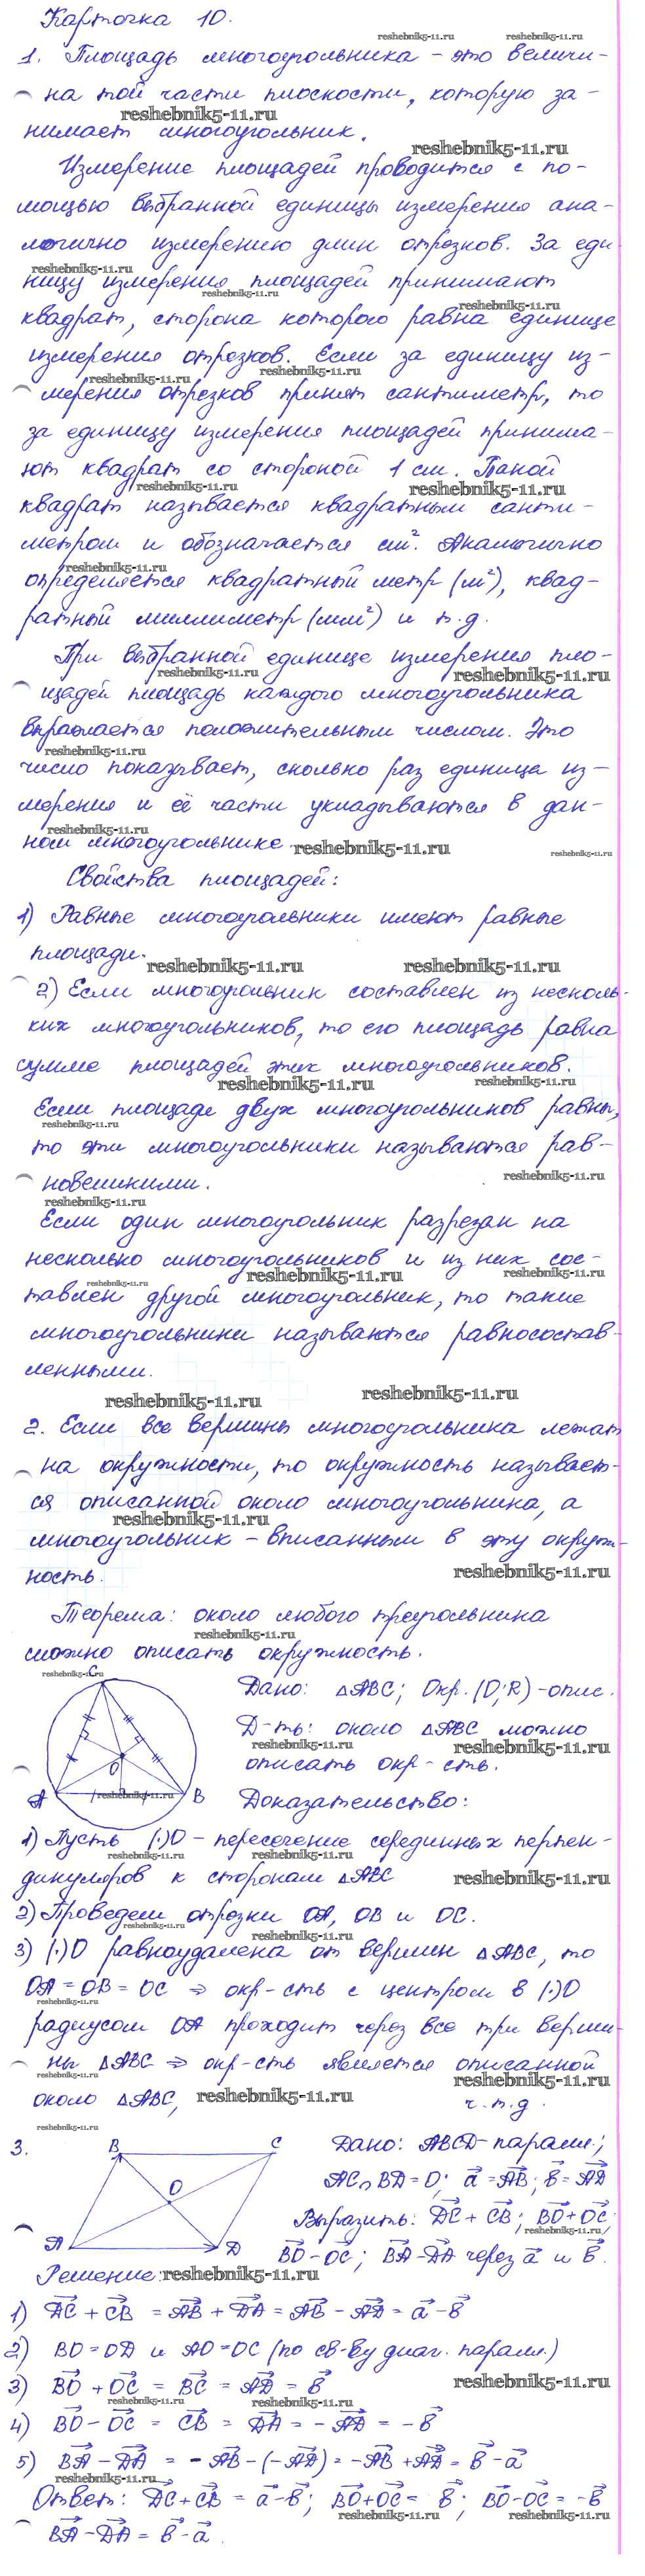 Карточка 10.
1. Площадь многоугольника – это величи-
на той части плоскости, которую за-
нимает многоугольник.
Измерение площадей проводится с по-
мощью выбранной единицы измерения ана-
логично измерению длин отрезков. За еди
ницу измерения площадей принимают
квадрат, сторона которого равна единице
измерения отрезков. Если за единицу из-
мерения отрезков принят сантиметр, то
за единицу измерения площадей принима-
ют квадрат со стороной 1 см. Такой
квадрат называется квадратным санти-
метром и обозначается см². Аналогично
определяется квадратный метр (м²), квад-
ратный миллиметр (мм²) и т.д.
При выбранной единице измерения пло-
щадей площадь каждого многоугольника
выражается положительным числом. Это
число показывает, сколько раз единица из-
мерения и её части укладываются в дан-
ном многоугольнике
Свойства площадей:
1) Равные многоугольники имеют равные
площади.
2) Если многоугольник составлен из несколь-
ких многоугольников, то его площадь равна
сумме площадей этих многоугольников.
Если площади двух многоугольников равны,
то эти многоугольники называются рав-
новеликими.
Если один многоугольник разрезан на
несколько многоугольников и из них сос-
тавлен другой многоугольник, то такие
многоугольники называются равносостав-
ленными.
2. Если все вершины многоугольника лежат
на окружности, то окружность называет-
ся описанной около многоугольника, а
многоугольник – вписанным в эту окруж-
ность.
Теорема: около любого треугольника
можно описать окружность.
C
O
A
B
Дано: △ABC; Окр.(O;R) – опис.
Д-ть: около △ABC можно
описать окр-сть.
Доказательство:
1) Пусть (·)O – пересечение серединных перпен-
дикуляров к сторонам △ABC
2) Проведем отрезки OA, OB и OC.
3) (·)O равноудалена от вершин △ABC, то
OA = OB = OC ⇒ окр-сть с центром в (·)O
радиусом OA проходит через все три верши-
ны △ABC ⇒ окр-сть является описанной
около △ABC,
ч.т.д.
3.
B
C
O
A
D
Дано: ABCD – паралл.;
AC∩BD = O; a⃗ = AB⃗; b⃗ = AD⃗
Выразить: DC⃗ + CB⃗; BO⃗ + OC⃗;
BO⃗ – OC⃗; BA⃗ – DA⃗ через a⃗ и b⃗.
Решение:
1) DC⃗ + CB⃗ = AB⃗ + DA⃗ = AB⃗ – AD⃗ = a⃗ – b⃗
2) BO = OD и AO = OC (по св-ву диаг. паралл.)
3) BO⃗ + OC⃗ = BC⃗ = AD⃗ = b⃗
4) BO⃗ – OC⃗ = CB⃗ = DA⃗ = – AD⃗ = – b⃗
5) BA⃗ – DA⃗ = – AB⃗ – (– AD⃗) = – AB⃗ + AD⃗ = b⃗ – a⃗
Ответ: DC⃗ + CB⃗ = a⃗ – b⃗; BO⃗ + OC⃗ = b⃗; BO⃗ – OC⃗ = – b⃗
BA⃗ – DA⃗ = b⃗ – a⃗.
reshebnik5-11.ru